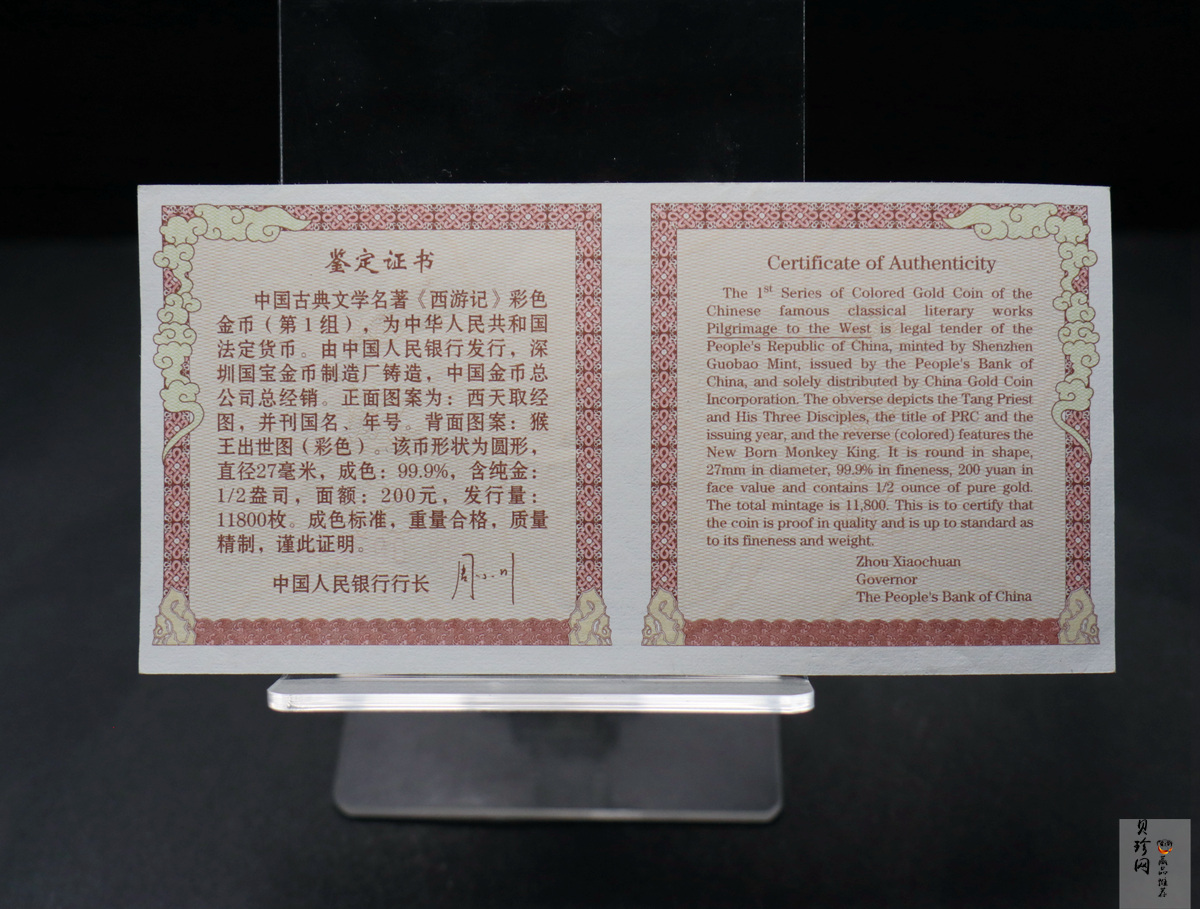 鉴定证书
中国古典文学名著《西游记》彩色
金币（第1组），为中华人民共和国
法定货币。由中国人民银行发行，深
圳国宝金币制造厂铸造，中国金币总
公司总经销。正面图案为：西天取经
图，并刊国名、年号。背面图案：猴
王出世图（彩色）。该币形状为圆形，
直径27毫米，成色：99.9%，含纯金：
1/2盎司，面额：200元，发行量：
11800枚。成色标准，重量合格，质量
精制，谨此证明。
中国人民银行行长 周小川
Certificate of Authenticity
The 1st Series of Colored Gold Coin of the
Chinese famous classical literary works
Pilgrimage to the West is legal tender of the
People's Republic of China, minted by Shenzhen
Guobao Mint, issued by the People's Bank of
China, and solely distributed by China Gold Coin
Incorporation. The obverse depicts the Tang Priest
and His Three Disciples, the title of PRC and the
issuing year, and the reverse (colored) features the
New Born Monkey King. It is round in shape,
27mm in diameter, 99.9% in fineness, 200 yuan in
face value and contains 1/2 ounce of pure gold.
The total mintage is 11,800. This is to certify that
the coin is proof in quality and is up to standard as
to its fineness and weight.
Zhou Xiaochuan
Governor
The People's Bank of China
贝珍网
藏品推荐